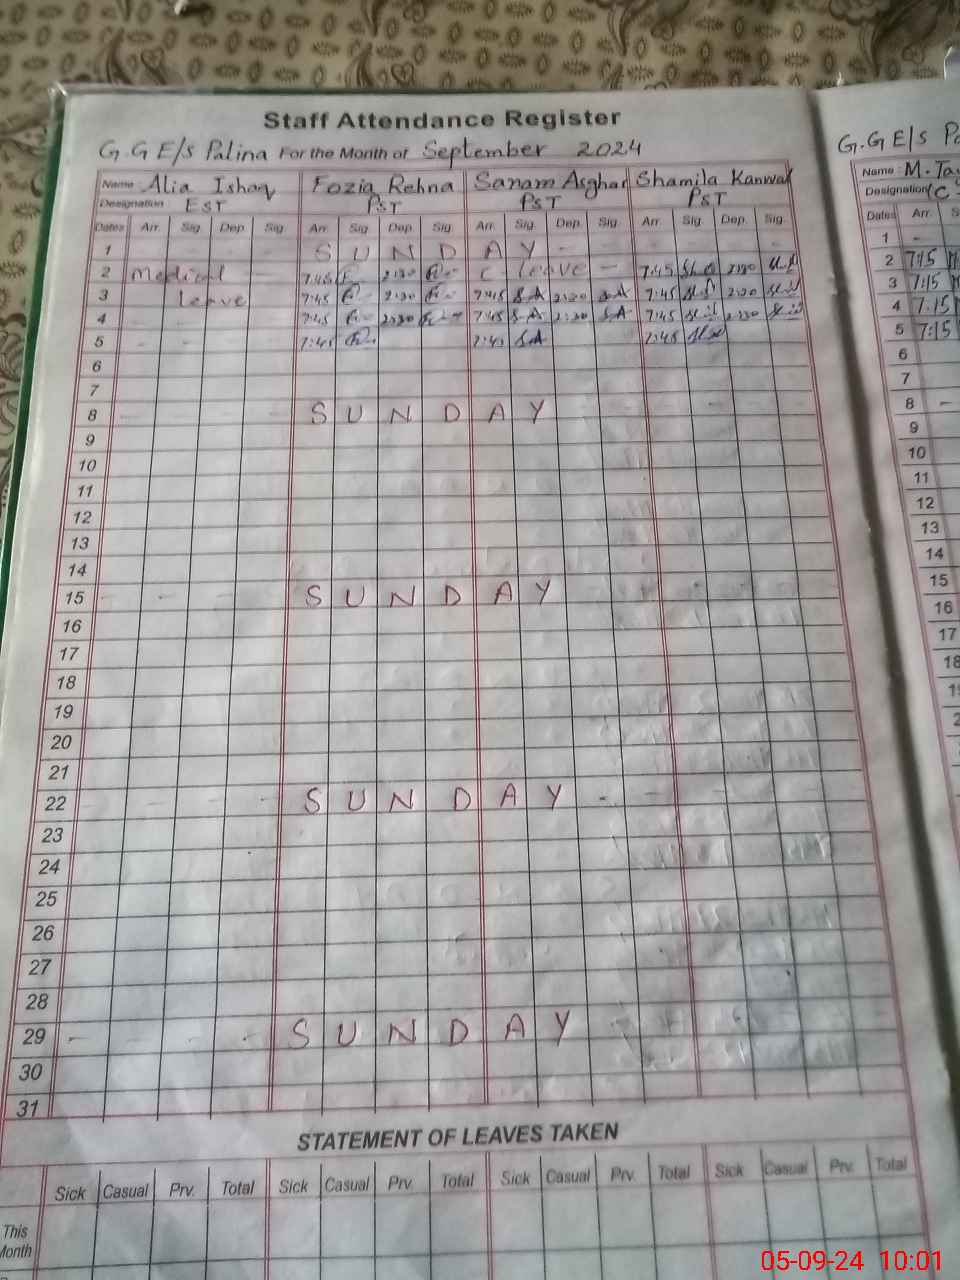 Staff Attendance Register
G.G E/S Palina For the Month of September 2024
G.G E/S Pa
Name Alia Ishaq Fozia Rehna Sanam Asghar Shamila Kanwal
Name: M. Ta
Designation EST PST PST PST
Designation
Dates Arr. Sig. Dep. Sig. Arr. Sig. Dep. Sig. Arr. Sig. Dep. Sig. Arr. Sig. Dep. Sig.
Dates Arr. S
1 - S U N D A Y -
1 -
2 Medical 7:45 2:30 C- leave - 7:45 2:30
2 7:15
3 leave 7:45 2:30 7:45 S.A 2:30 S.A 7:45 2:30
3 7:15
4 - 7:45 2:30 7:45 S.A 2:30 S.A 7:45 2:30
4 7:15
5 - - - 7:45 7:45 S.A 7:45
5 7:15
6
6
7
7
8 S U N D A Y
8 -
9
9
10
10
11
11
12
12
13
13
14
14
15 - - - S U N D A Y
15
16
16
17
17
18
18
19
20
21
22 - - - - S U N D A Y - -
23
24
25
26
27
28
29 - - - - S U N D A Y
30
31
STATEMENT OF LEAVES TAKEN
Sick Casual Prv. Total Sick Casual Prv. Total Sick Casual Prv. Total Sick Casual Prv. Total
This
Month
05-09-24 10:01